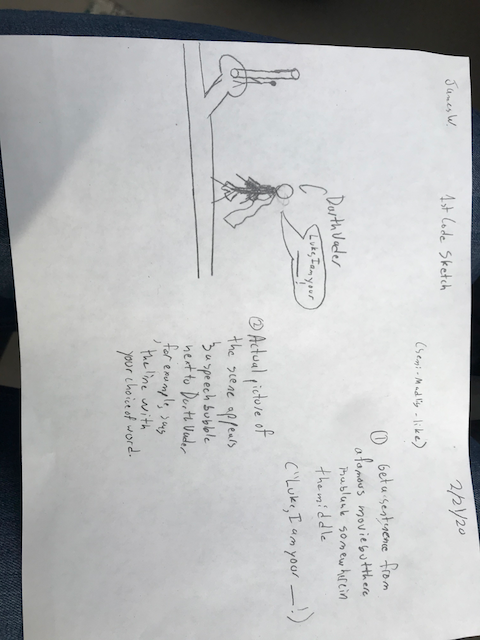 James W. 1st Code Sketch 2/21/20
(semi-Madlib-like)
① Get a sentence from
a famous movie but there
in a blank somewhere in
the middle
("Luke, I am your __!)
Darth Vader
Luke, I am your
__!
② Actual picture of
the scene appears
& a speech bubble
next to Darth Vader
, for example, says
the line with
your choice of word.